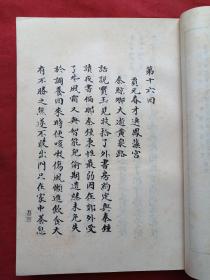 第十六回
賈元春才選鳳藻宮
秦鯨卿夭逝黃泉路
話說寶玉見收拾了外書房約定與秦鐘
讀夜書偏那秦鐘秉性最弱因在郊外受
了些風霜又與智能兒偷期繾綣未免失
於調養回來時便咳嗽傷風懶進飲食大
有不勝之態遂不敢出門只在家中養息